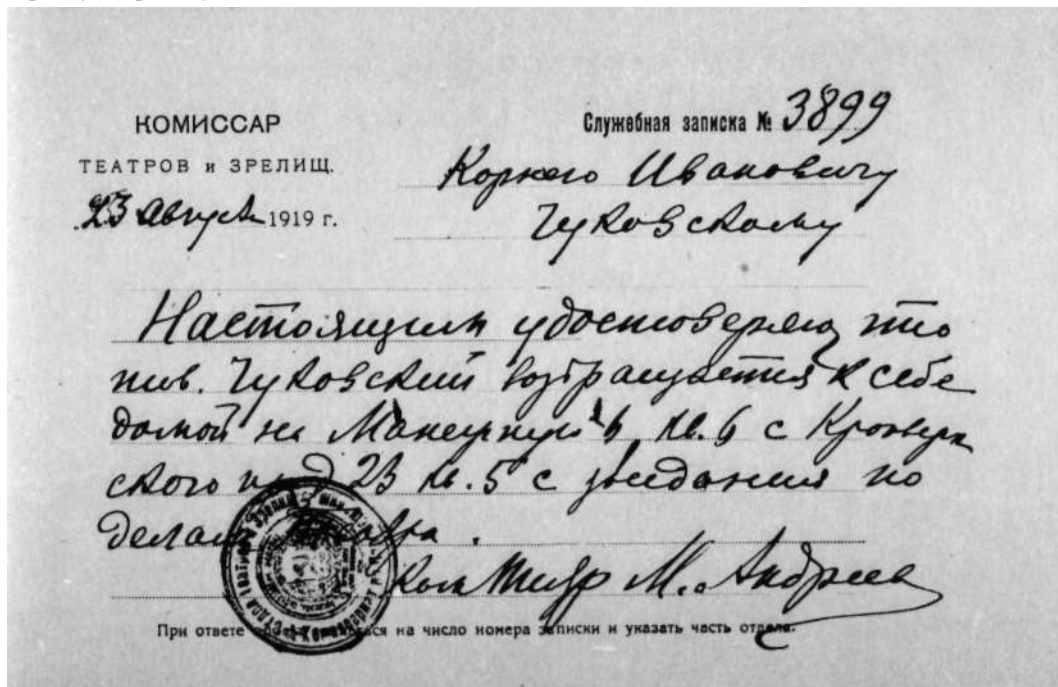 КОМИССАР
ТЕАТРОВ и ЗРЕЛИЩ.
23 августа 1919 г.
Служебная записка № 3899
Корнею Ивановичу
Чуковскому
Настоящим удостоверяю что
тов. Чуковский возвращается к себе
домой на Манежную 6, кв. 6 с Кронверк
ского пр д 23 кв. 5 с заседания по
делам
Ком М. Андреева
При ответе на число номера записки и указать часть отдела.